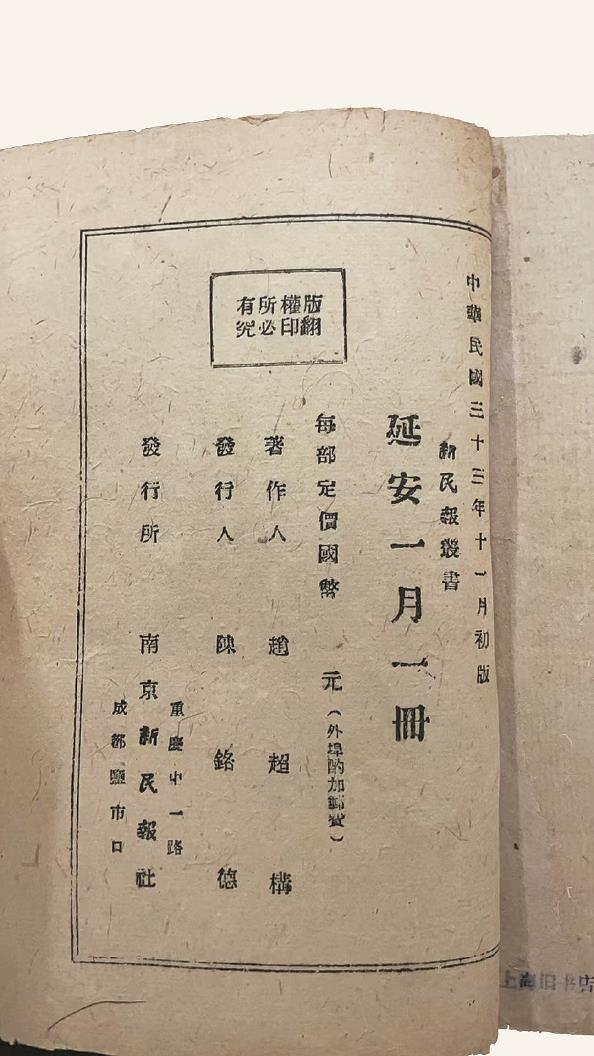 中華民國三十三年十一月初版
新民報叢書
延安一月一冊
每部定價國幣　元（外埠酌加郵費）
版權所有
翻印必究
著作人　趙超構
發行人　陳銘德
發行所　南京新民報社
重慶中一路
成都鹽市口
上海旧书店